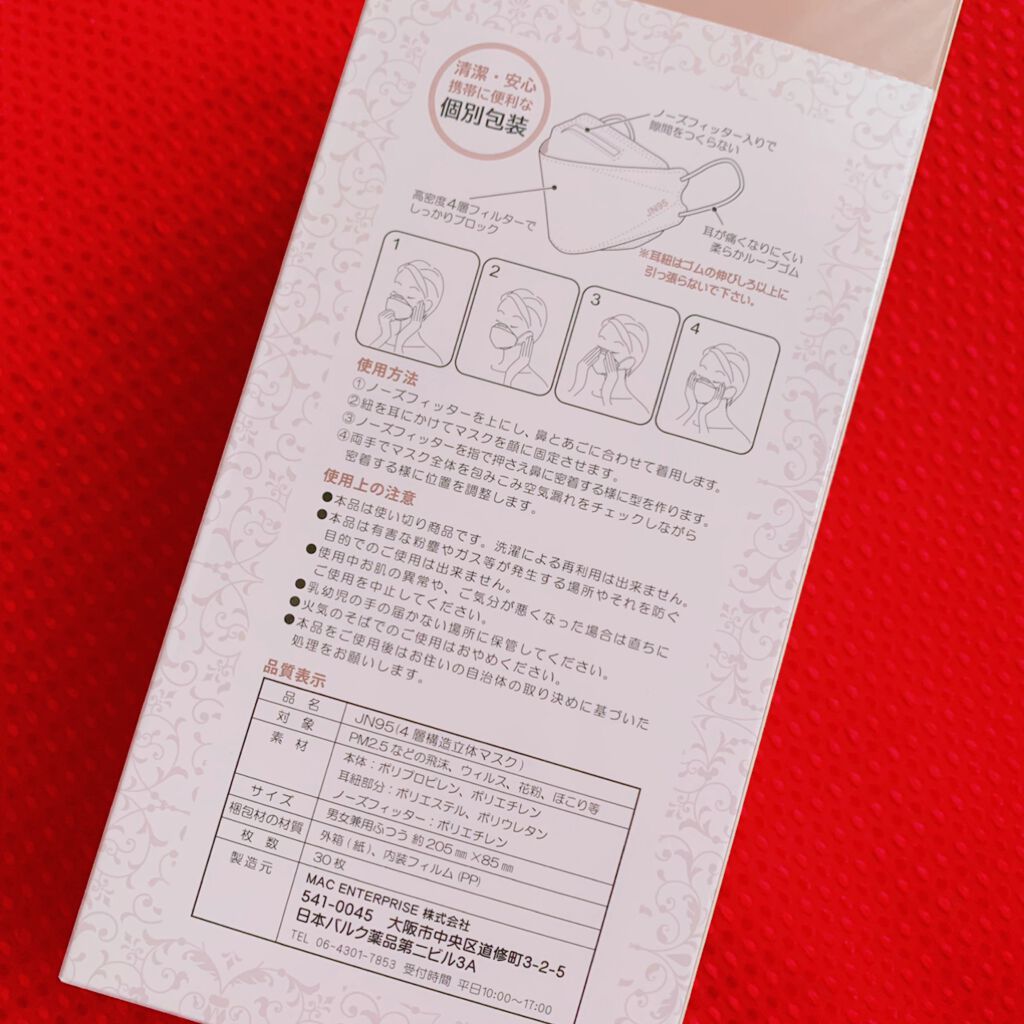 清潔・安心
携帯に便利な
個別包装
ノーズフィッター入りで
隙間をつくらない
高密度4層フィルターで
しっかりブロック
JN95
耳が痛くなりにくい
柔らかループゴム
※耳紐はゴムの伸びしろ以上に
引っ張らないで下さい。
1
2
3
4
使用方法
①ノーズフィッターを上にし、鼻とあごに合わせて着用します。
②紐を耳にかけてマスクを顔に固定させます。
③ノーズフィッターを指で押さえ鼻に密着する様に型を作ります。
④両手でマスク全体を包みこみ空気漏れをチェックしながら
密着する様に位置を調整します。
使用上の注意
●本品は使い切り商品です。洗濯による再利用は出来ません。
●本品は有害な粉塵やガス等が発生する場所やそれを防ぐ
目的でのご使用は出来ません。
●使用中お肌の異常や、ご気分が悪くなった場合は直ちに
ご使用を中止してください。
●乳幼児の手の届かない場所に保管してください。
●火気のそばでのご使用はおやめください。
●本品をご使用後はお住いの自治体の取り決めに基づいた
処理をお願いします。
品質表示
品名 JN95(4層構造立体マスク)
対象 PM2.5などの飛沫、ウィルス、花粉、ほこり等
素材 本体：ポリプロピレン、ポリエチレン
耳紐部分：ポリエステル、ポリウレタン
ノーズフィッター：ポリエチレン
サイズ 男女兼用ふつう 約205㎜×85㎜
梱包材の材質 外箱(紙)、内装フィルム(PP)
枚数 30枚
製造元 MAC ENTERPRISE 株式会社
541-0045 大阪市中央区道修町3-2-5
日本バルク薬品第二ビル3A
TEL 06-4301-7853 受付時間 平日10:00〜17:00